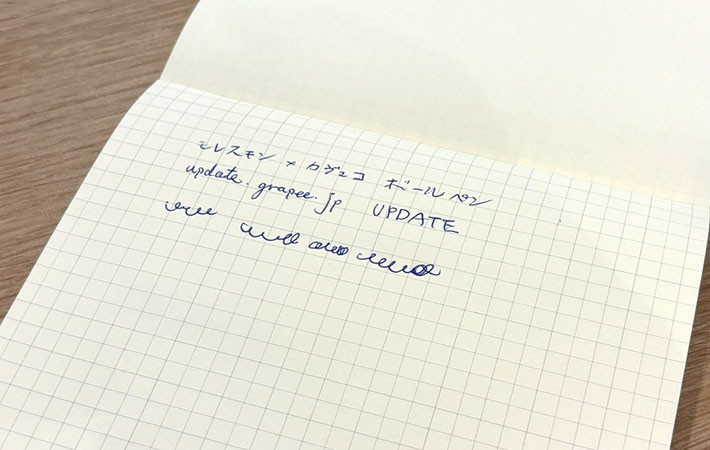 モレスキン × カヴェコ ボールペン
update.grapee.jp UPDATE